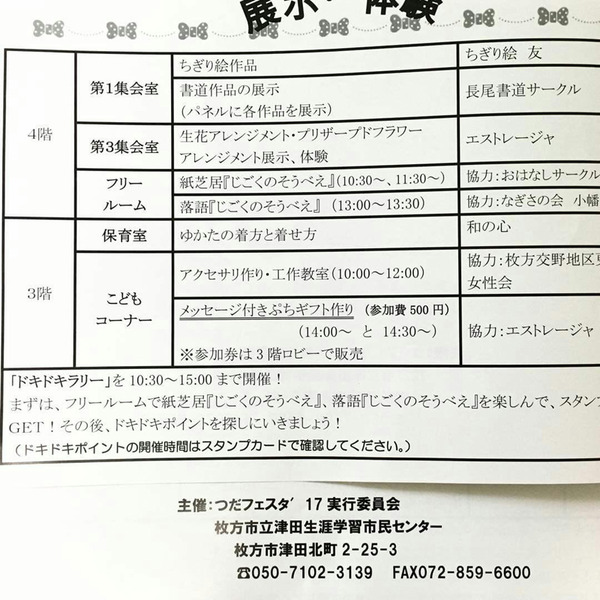 展示・体験
ちぎり絵作品 ちぎり絵 友
第1集会室 書道作品の展示 長尾書道サークル
(パネルに各作品を展示)
4階
第3集会室 生花アレンジメント・プリザーブドフラワー エストレージャ
アレンジメント展示、体験
フリー 紙芝居『じごくのそうべえ』(10:30～、11:30～) 協力:おはなしサークル
ルーム 落語『じごくのそうべえ』 (13:00～13:30) 協力:なぎさの会 小幡
保育室 ゆかたの着方と着せ方 和の心
3階
こども
コーナー
アクセサリ作り・工作教室(10:00～12:00) 協力:枚方交野地区
女性会
メッセージ付きぷちギフト作り (参加費500円)
(14:00～ と 14:30～) 協力:エストレージャ
※参加券は3階ロビーで販売
「ドキドキラリー」を10:30～15:00まで開催!
まずは、フリールームで紙芝居『じごくのそうべえ』、落語『じごくのそうべえ』を楽しんで、スタンプ
GET!その後、ドキドキポイントを探しにいきましょう!
(ドキドキポイントの開催時間はスタンプカードで確認してください。)
主催:つだフェスタ'17実行委員会
枚方市立津田生涯学習市民センター
枚方市津田北町2-25-3
☎050-7102-3139 FAX072-859-6600